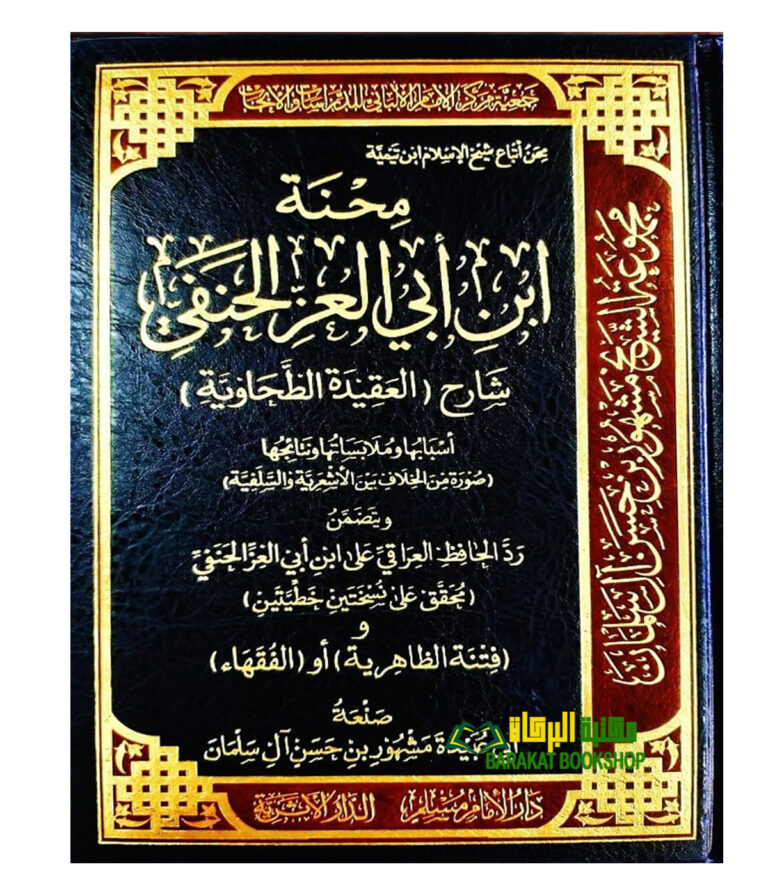 جمعية مركز الإمام الألباني للدراسات والأبحاث
مِحَنُ أتباع شيخ الإسلام ابن تيمية
مِحْنَة
ابْنِ أَبي العِزِّ الحَنَفيِّ
شَارح (العَقِيدَة الطَّحَاوِيَّة)
أسْبَابُها ومُلَابَسَاتُها ونَتَائِجُها
(صُورَة مِنَ الخِلَاف بَيْنَ الأشْعَرِيَّة والسَّلَفِيَّة)
ويتَضَمَّنُ
رَدَّ الحَافِظِ العِرَاقيِّ عَلى ابن أبي العِزِّ الحَنَفيِّ
(مُحَقَّق عَلى نُسْخَتَينِ خَطِّيَّتَينِ)
و
(فِتْنَة الظاهرية) أو (الفُقَهَاء)
صَنْعَةُ
عُبَيْدَة مَشْهُور بن حَسَن آل سَلْمَان
دار الإمام مسلم
الدار الأثرية
مجموعة الشيخ مشهور بن حسن آل سلمان
مكتبة البركاة
BARAKAT BOOKSHOP